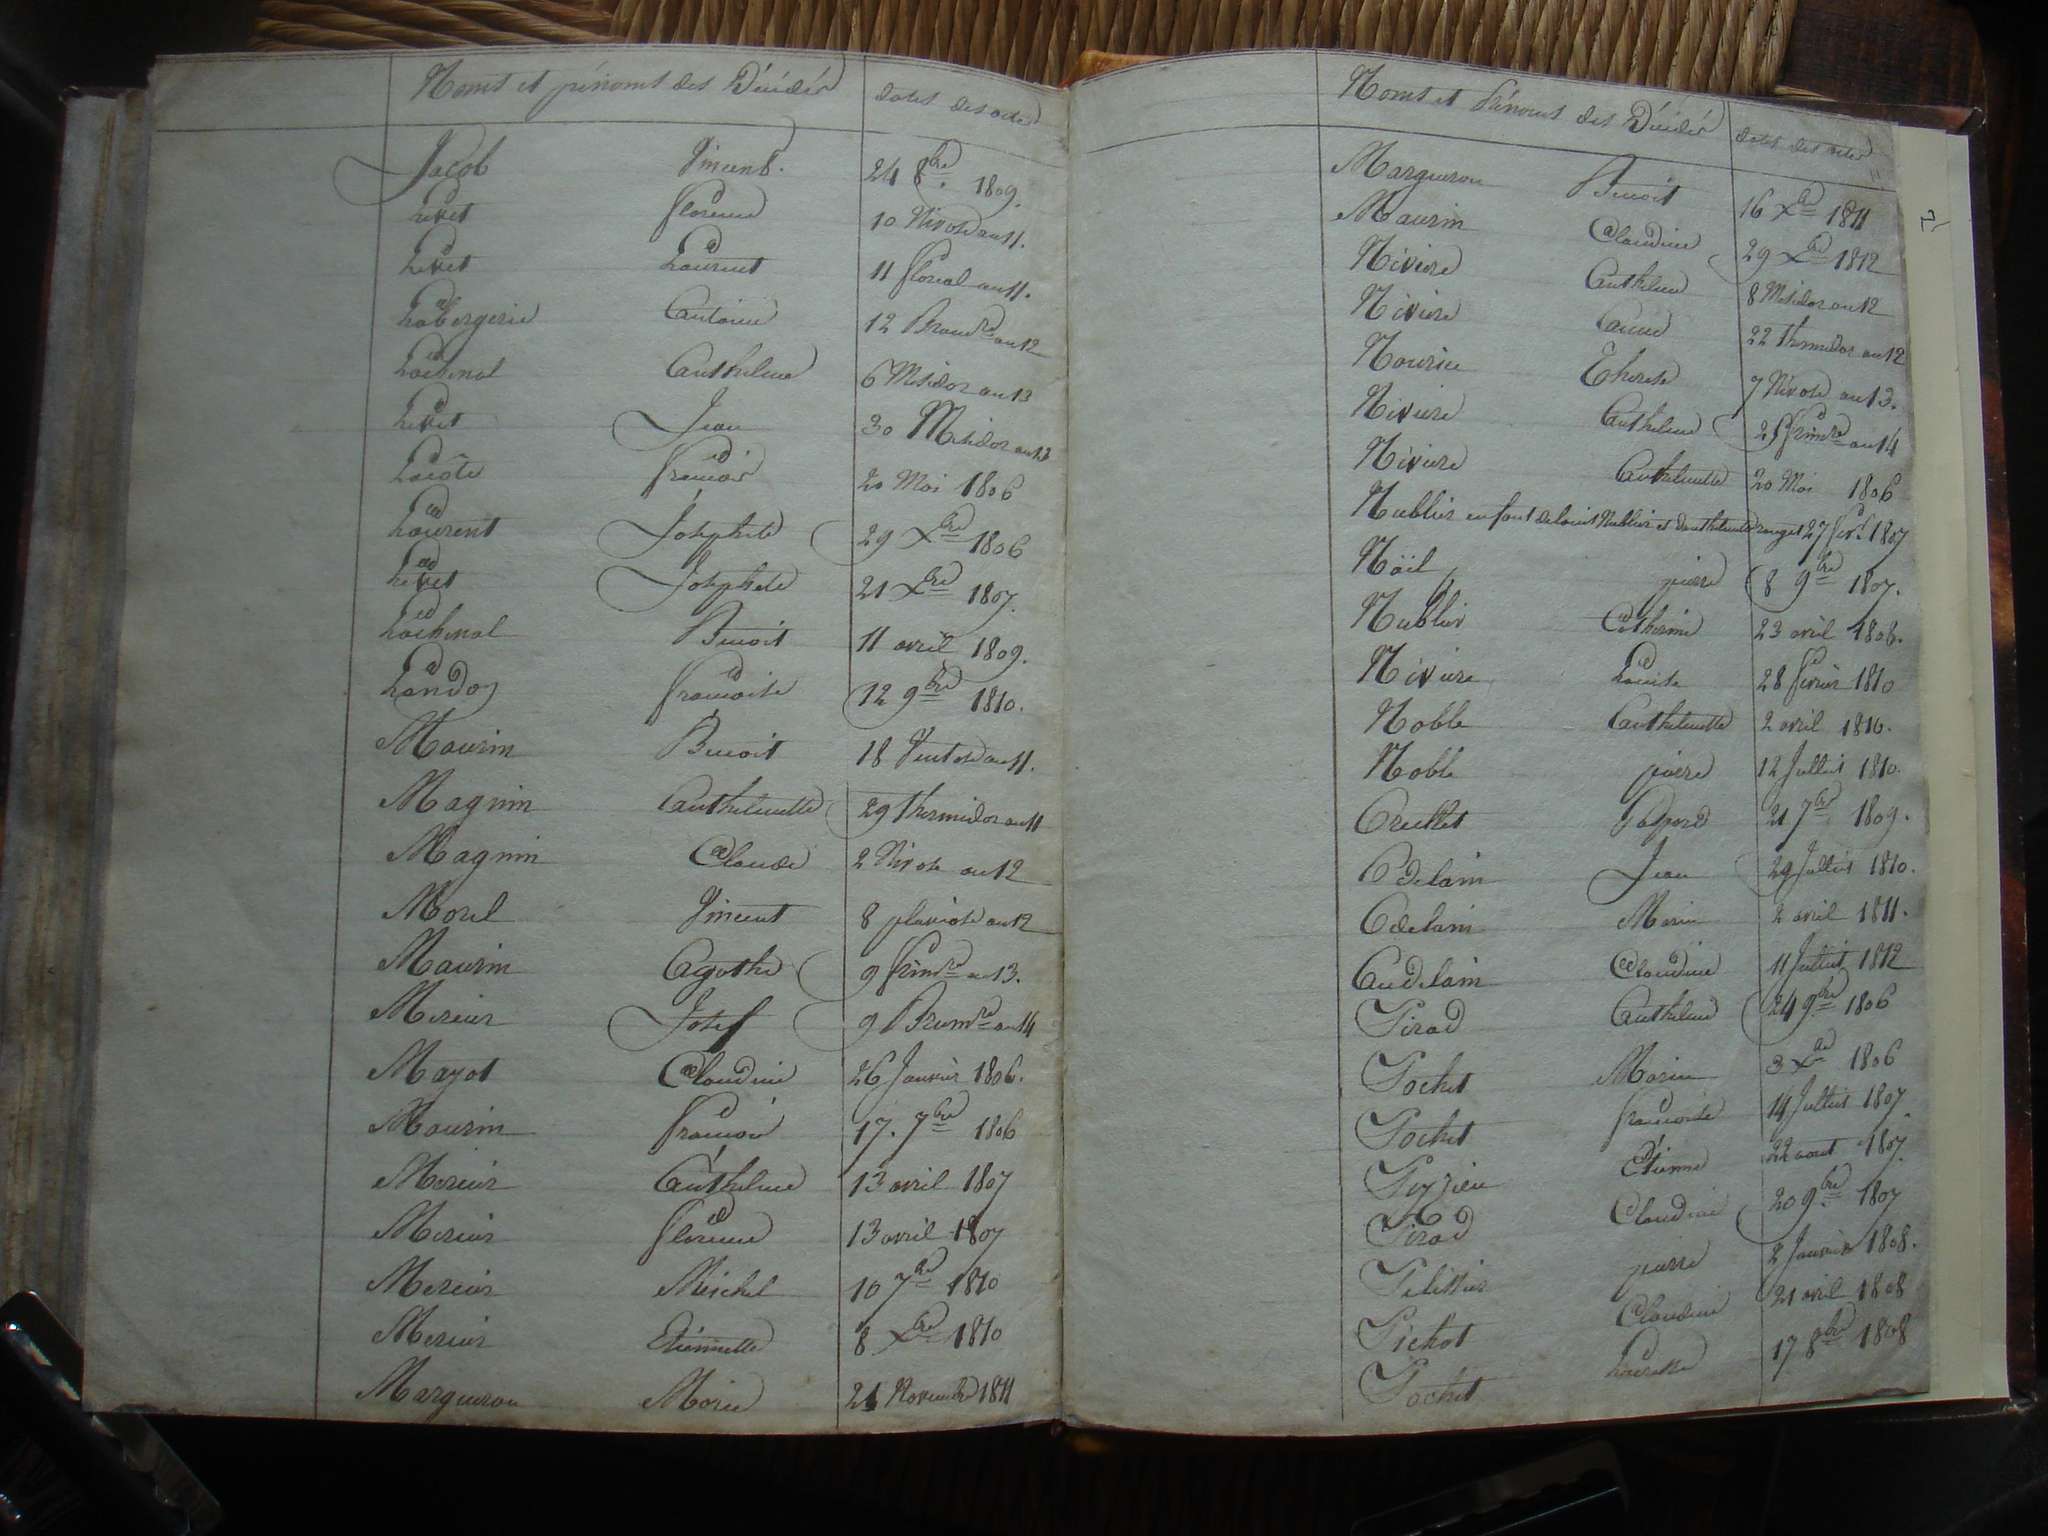 Noms et prénoms des Décédés dates des actes
Jacob Vincent. 24 8bre. 1809.
Levet florence 10 Nivose an 11.
Levet Laurent 11 floreal an 11.
Labergerie Antoine 12 Brumre an 12
Lachenal Anthelme 6 Mesidor an 13
Levet Jean 30 Mesidor an 13
Lacôte francois 20 Mai 1806
Laurent Josephte 29 Xbre 1806
Levet Josephete 21 Xbre 1807.
Lachenal Benoit 11 avril 1809.
Landoz francoise 12 9bre 1810.
Maurin Benoit 18 Ventose an 11.
Magnin Anthelmette 29 thermidor an 11
Magnin Claude 2 Nivose an 12
Morel Vincent 8 pluviose an 12
Maurin Agathe 9 frimre an 13.
Mercier Josef 9 Brumre an 14
Mayot Claudine 26 Janvier 1806.
Maurin francois 17. 7bre 1806
Mercier Anthelme 13 avril 1807
Mercier florence 13 avril 1807
Mercier Michel 10 7bre 1810
Mercier Etiennette 8 Xbre 1810
Margueron Marie 21 Novembre 1811
Noms et Prénoms des Décédés dates des actes
Margueron Benoit 16 Xbre 1811
Maurin Claudine 29 Xbre 1812
Niviere Anthelme 8 Mesidor an 12
Niviere anne 22 thermidor an 12
Nouriee Therese 7 Nivose an 13.
Niviere Anthelme frimre an 14
Niviere Anthelmette 20 Mai 1806
Nublier enfant de Louis Nublier et d'anthelmette 27 fevr. 1807
Noël pierre 8 9bre 1807.
Nublier Catherine 23 avril 1808.
Niviere Louise 28 fevrier 1810
Noble Anthelmette 2 avril 1810.
Noble pierre 12 Juillet 1810.
Oreillet Gaspard 21 7bre 1809.
Odelain Jean 29 Juillet 1810.
Odelain Marie 2 avril 1811.
Audelain Claudine 11 Juillet 1812
Pirad Anthelme 24 9bre 1806
Pochet Marie 3 Xbre 1806
Pochet francoise 14 Juillet 1807
Peyzieu Etienne 22 aout 1807.
Pirad Claudine 20 9bre 1807
Pelissier pierre 2 Janvier 1808.
Pichot Claudine 21 avril 1808
Pochet Laurette 17 8bre 1808